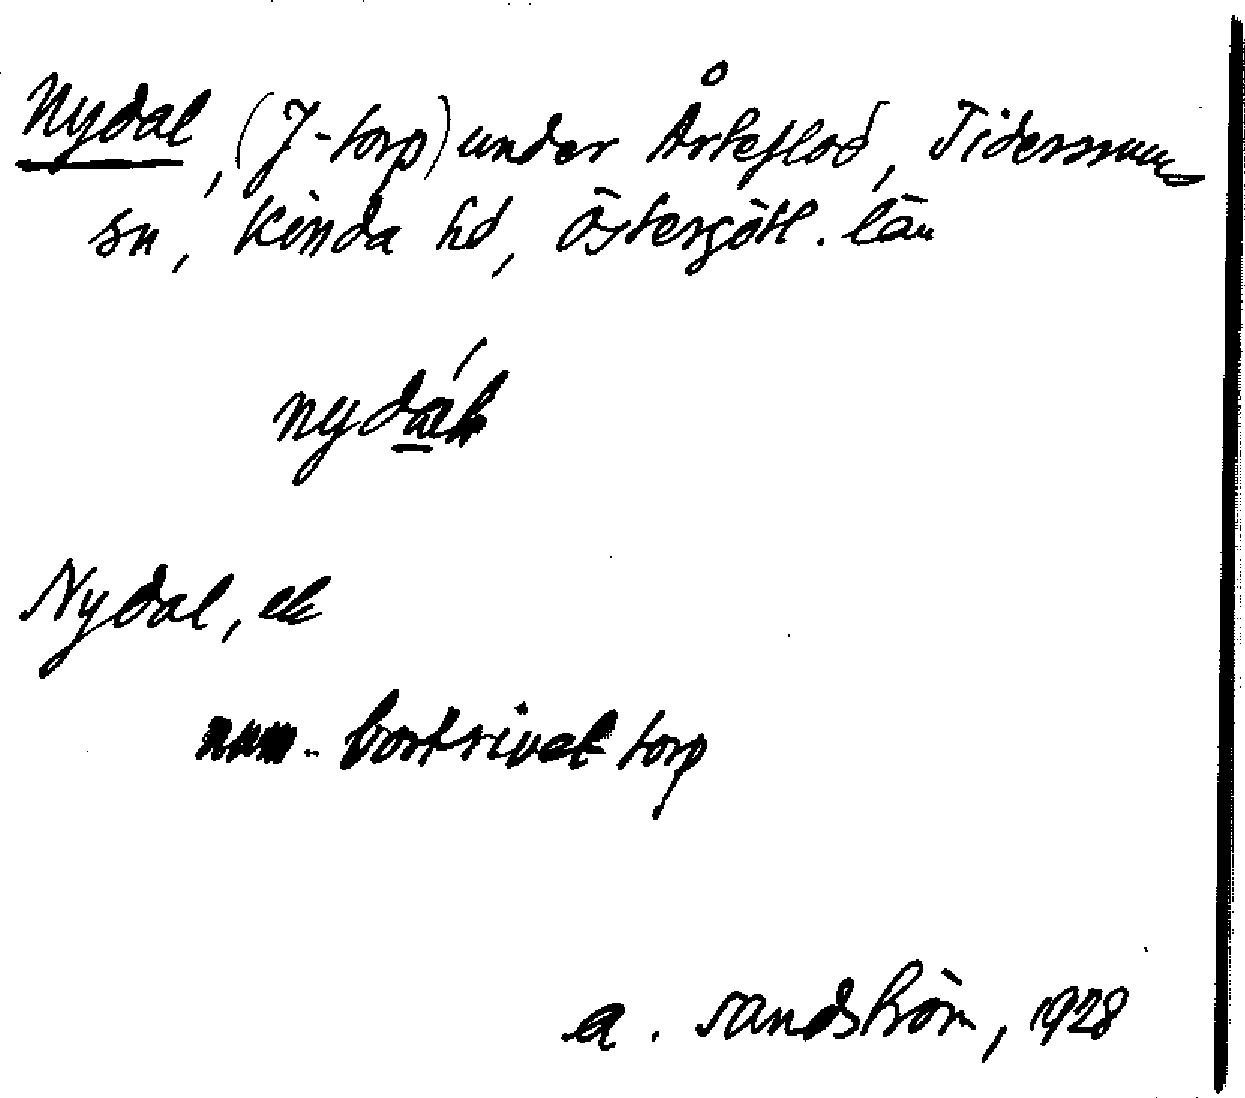 Nydal, (J-torp) under Årteflod, Tidersrums
sn, Kinda hd, Östergötl. län
nydál
Nydal, ek
num. bortrivet torp
A. Sandström, 1928